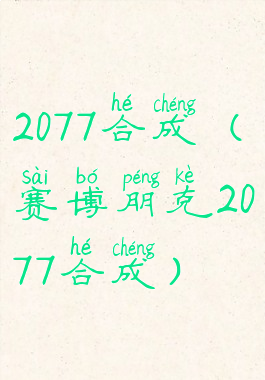 hé chéng
2077合成（
sài bó péng kè
赛博朋克20
hé chéng
77合成）